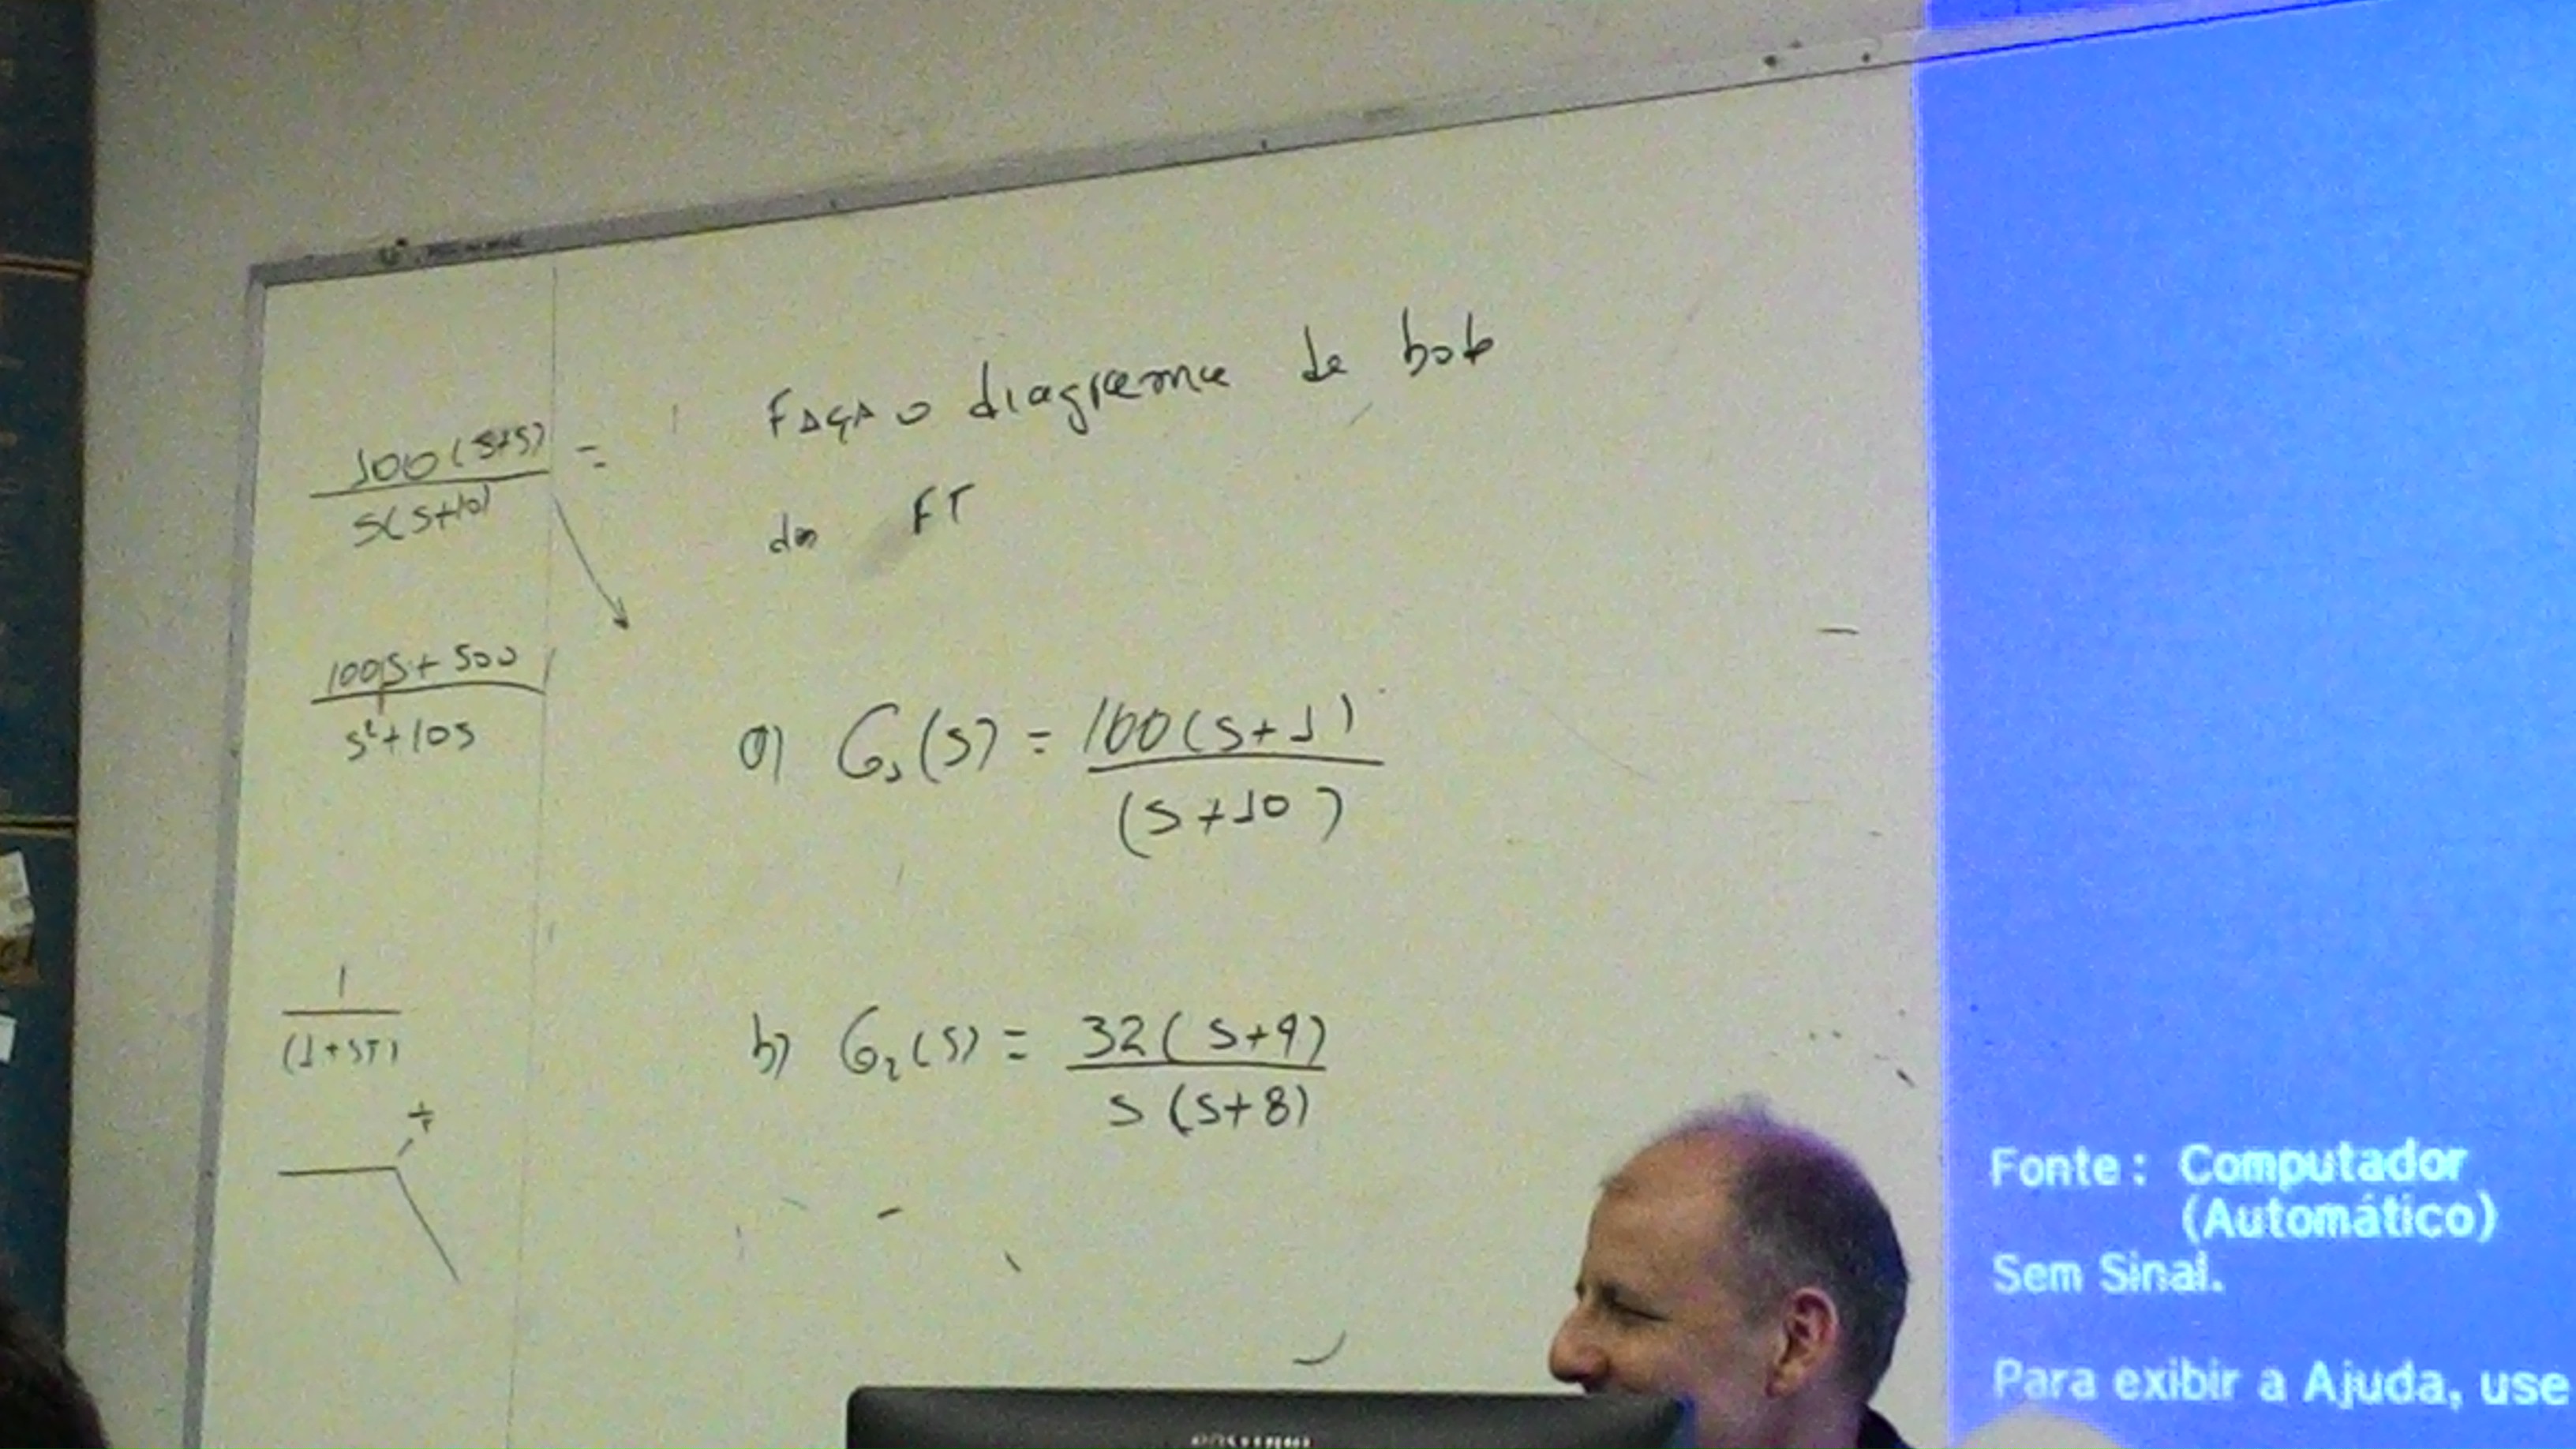 100(s+5) =
s(s+10)
100s + 500
s²+10s
1
(1+sT)
FAÇA o diagrama de bode
da FT
a) G₁(s) = 100(s+1)
(s+10)
b) G₂(s) = 32(s+4)
s(s+8)
Fonte: Computador
(Automático)
Sem Sinal.
Para exibir a Ajuda, use